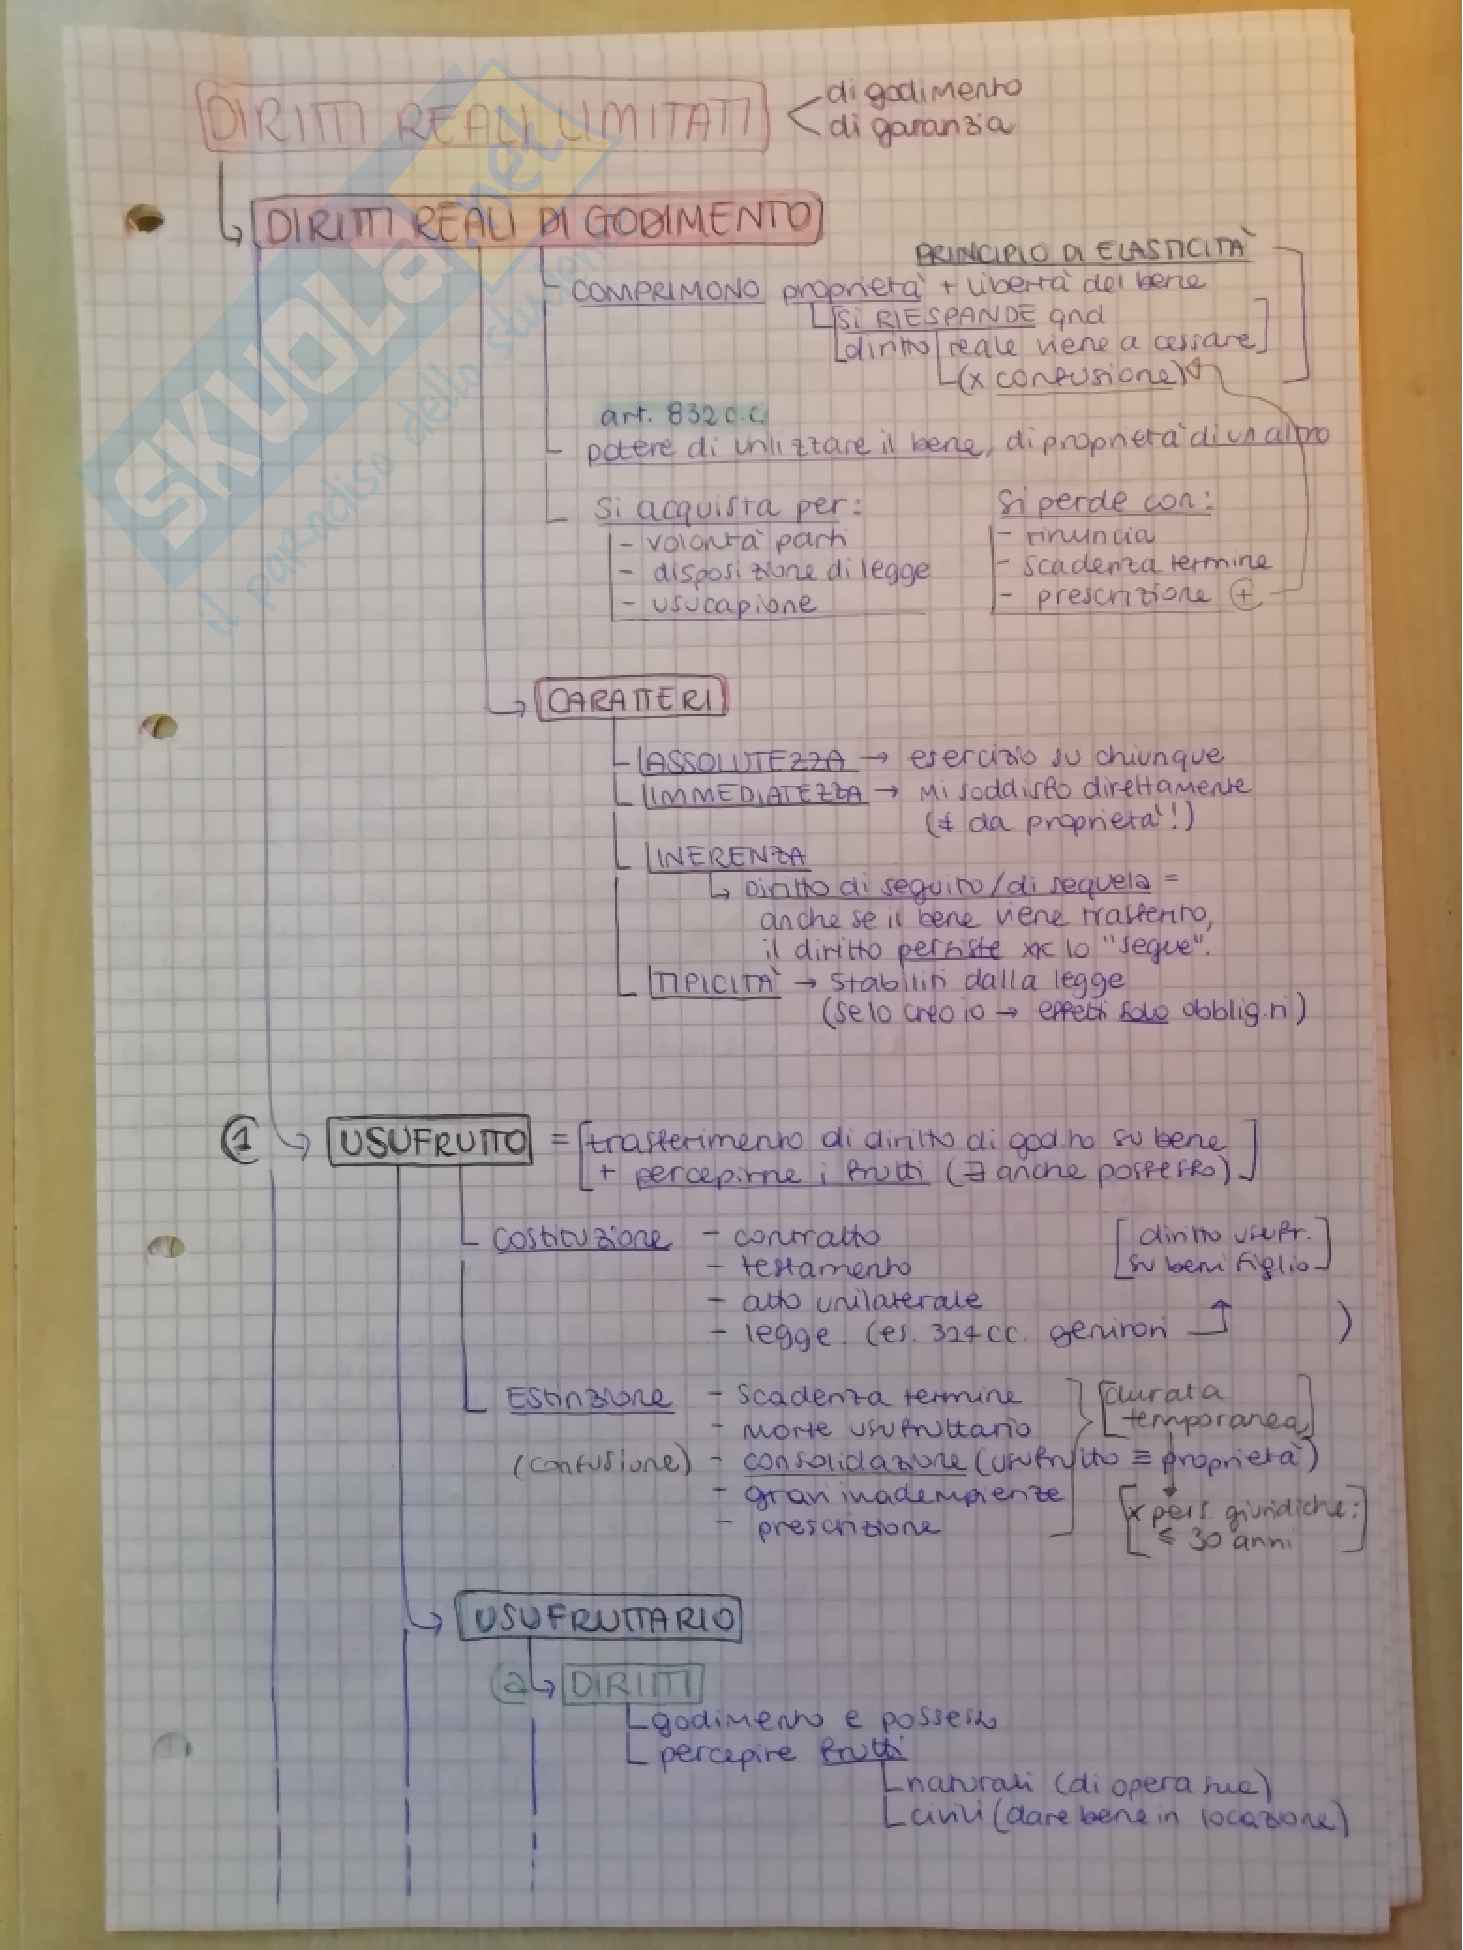 DIRITTI REALI LIMITATI
di godimento
di garanzia
DIRITTI REALI DI GODIMENTO
PRINCIPIO DI ELASTICITÀ
COMPRIMONO proprietà + libertà del bene
Si RIESPANDE qnd
diritto reale viene a cessare
(x confusione)
art. 832 c.c.
potere di utilizzare il bene, di proprietà di un altro
Si acquista per:
- volontà parti
- disposizione di legge
- usucapione
Si perde con:
- rinuncia
- scadenza termine
- prescrizione +
CARATTERI
ASSOLUTEZZA → esercizio su chiunque
IMMEDIATEZZA → mi soddisfo direttamente
(≠ da proprietà!)
INERENZA
↳ Diritto di seguito/di sequela =
anche se il bene viene trasferito,
il diritto persiste xk lo "segue".
TIPICITÀ → stabiliti dalla legge
(se lo creo io → effetti solo obblig.ri)
1 → USUFRUTTO = [trasferimento di diritto di god.to su bene
+ percepirne i frutti (∃ anche possesso)]
Costituzione - contratto
- testamento
- atto unilaterale
- legge (es. 324 cc. genitori )
[diritto usufr.
su beni figlio]
Estinzione - scadenza termine
- morte usufruttario
(confusione) - consolidazione (usufruito ≡ proprietà)
- gravi inadempienze
- prescrizione
[durata
temporanea]
[x pers. giuridiche:
≤ 30 anni]
USUFRUTTARIO
a → DIRITTI
godimento e possesso
percepire frutti
naturali (di opera sua)
civili (dare bene in locazione)
SKUOLA.net
il paradiso dello studente